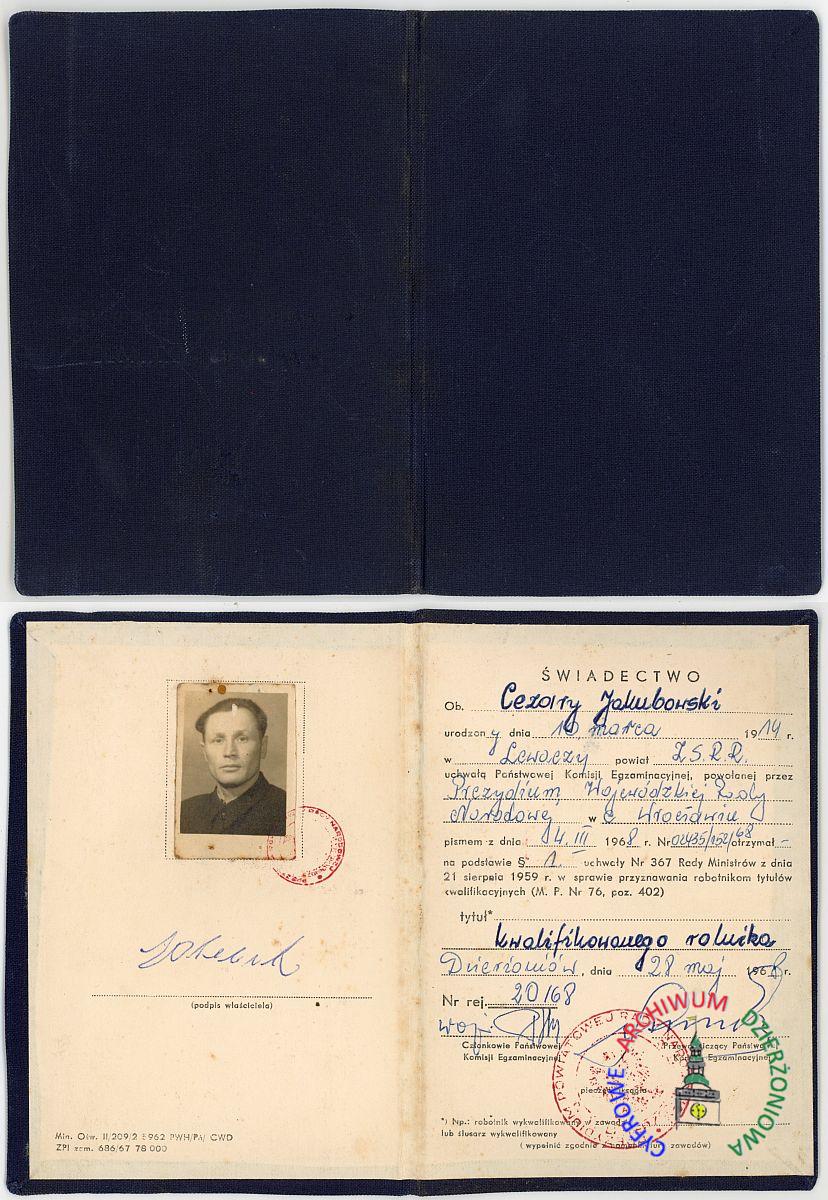 ŚWIADECTWO
Ob. Cezary Jakubowski
urodzony dnia 10 marca 1914 r.
w Lewaczy powiat Z.S.R.R.
uchwałą Państwowej Komisji Egzaminacyjnej, powołanej przez
Prezydium Wojewódzkiej Rady
Narodowej we Wrocławiu
pismem z dnia 4. III 1968 r. Nr otrzymał -
na podstawie § 1. - uchwały Nr 367 Rady Ministrów z dnia
21 sierpnia 1959 r. w sprawie przyznawania robotnikom tytułów
kwalifikacyjnych (M. P. Nr 76, poz. 402)
tytuł*
kwalifikowanego rolnika
Dzierżoniów, dnia 28 maj 1968 r.
Nr rej. 20/68
Członkowie Państwowej
Komisji Egzaminacyjnej
Przewodniczący Państwowej
Komisji Egzaminacyjnej
*) Np.: robotnik wykwalifikowany w zawodzie
lub ślusarz wykwalifikowany
(wypełnić zgodnie z nomenklaturą zawodów)
(podpis właściciela)
Min. Ośw. II/209/2 5962 PWH/PA/ CWD
ZPI zam. 686/67 78 000
CYFROWE ARCHIWUM DZIERŻONIOWA